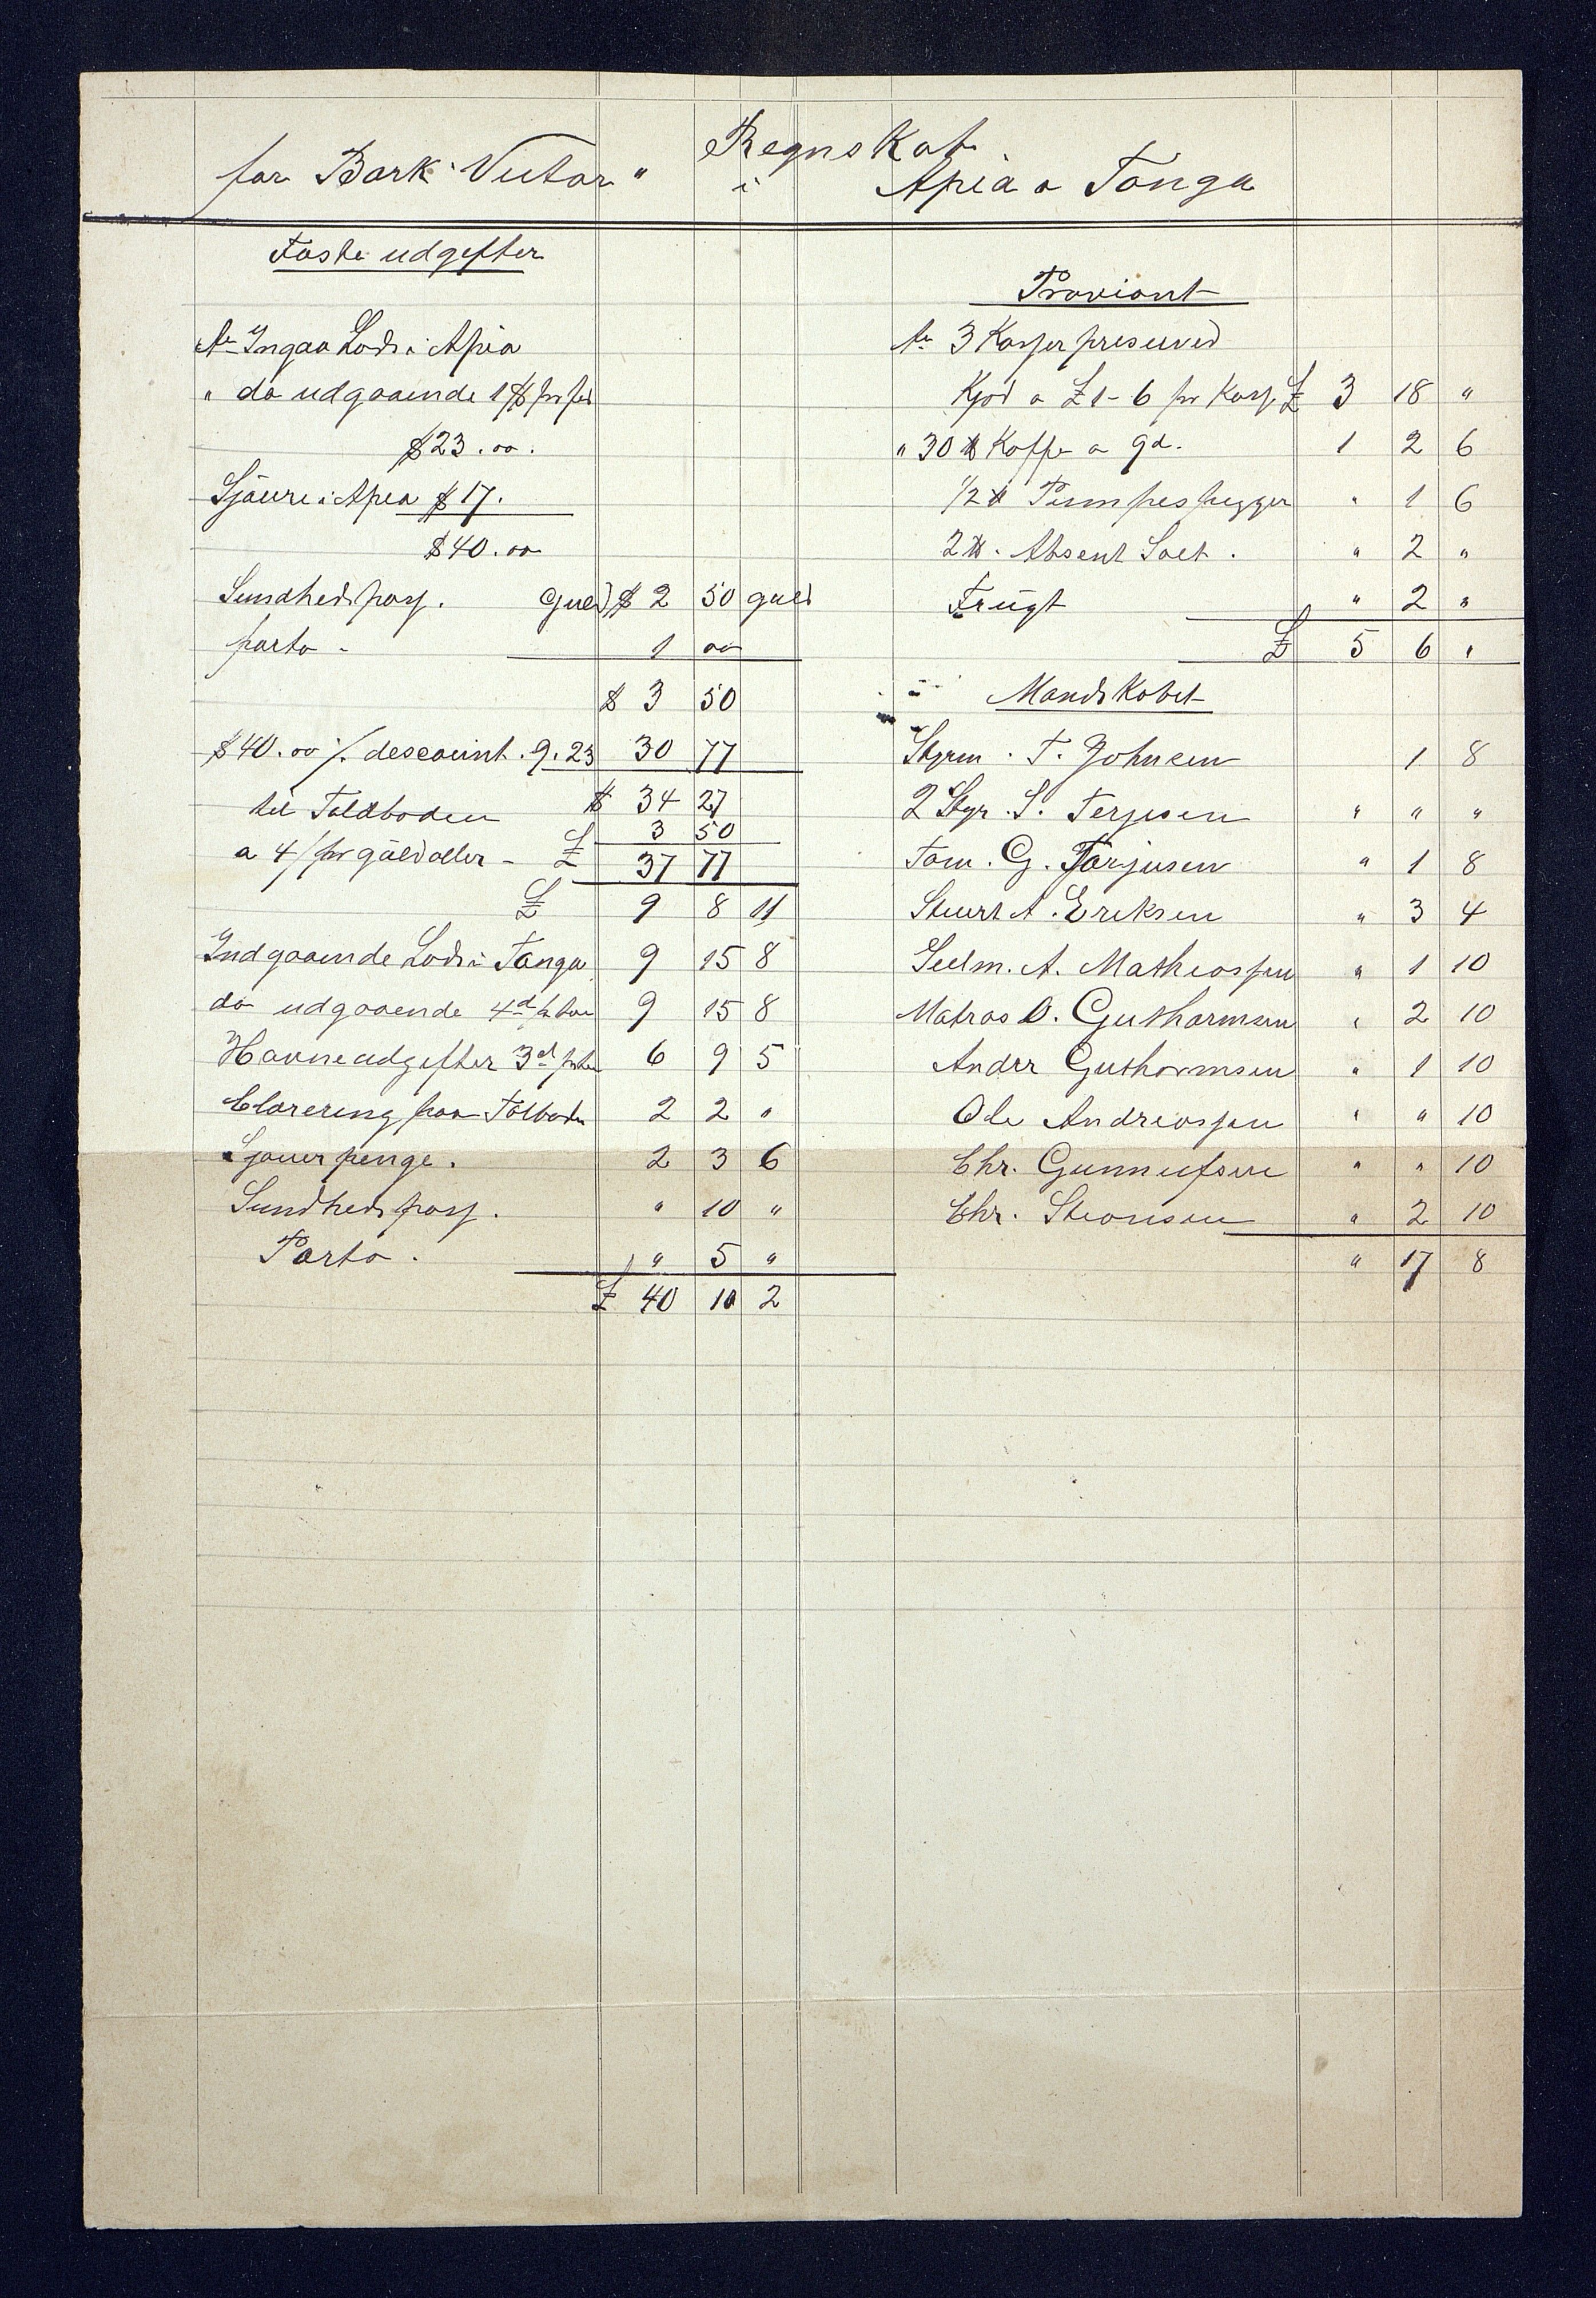 Regnskab
for Bark "Victor" i Apia o Tonga
Faste udgifter
An Ingaa Lods i Apia
" do udgaaende 1 $ pr fod
$23.00.
Sjäure i Apia $17.
$40.00
Sundhedspass. Guld $ 2 50 guld
porto - 1 00
$ 3 50
$40.00 ./. descount. 9.23 30 77
$ 34 27
til Toldboden 3 50
a 4/ pr gúldoller - £ 37 77
£ 9 8 11
Indgaaende Lods i Tonga 9 15 8
do udgaaende 4d pr ton 9 15 8
Havneudgifter 3d pr ton 6 9 5
Clarering paa Tolboden 2 2 "
Sjouerpenge. 2 3 6
Sundhedspass. " 10 "
Porto. " 5 "
£ 40 10 2
Proviant
An 3 Kasser preserved
Kjød a £1-6 pr Kass. £ 3 18 "
" 30 ℔ Kaffe a 9d. 1 2 6
1/2 ℔ Pumpespigger " 1 6
2 ℔. Absent Salt. " 2 "
Frügt " 2 "
£ 5 6 "
Mandskabet
Styrm. T. Johnsen 1 8
2 Styr. S. Terjesen " " "
Tøm. G. Torjusen " 1 8
Stuert A. Eriksen " 3 4
Seilm. A. Mathiassen " 1 10
Matros O. Guthormsen " 2 10
Andrr Guthormsen " 1 10
Ole Andreassen " " 10
Chr. Gunnufsen " " 10
Chr. Steonsen " 2 10
" 17 8